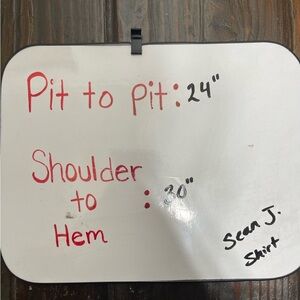 Pit to pit: 24"
Shoulder
to : 30"
Hem
Sean J.
Shirt